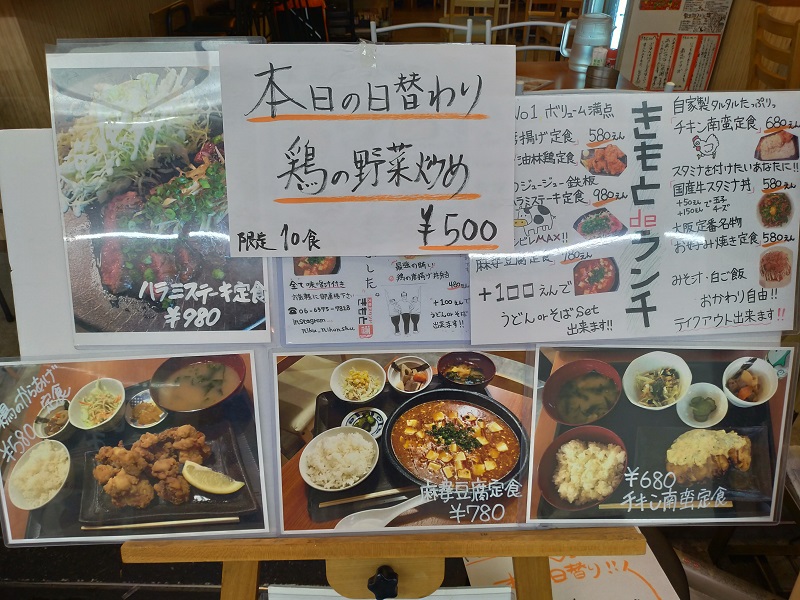 本日の日替わり
鶏の野菜炒め
限定10食
¥500
ハラミステーキ定食
¥980
全て味噌汁付き
お気軽に御連絡下さい
Instagram
480
+100えんで
うどんorそばSet
出来ます!!
No1 ボリューム満点
揚げ定食」580えん
油林鶏定食
ジュージュー鉄板
ハラミステーキ定食 980えん
シビレMAX!!
麻婆豆腐定食 780えん
+100えんで
うどんorそばSet
出来ます!!
きもと de ランチ
自家製タルタルたっぷりっ
「チキン南蛮定食」680えん
スタミナを付けたいあなたに!!
「国産牛スタミナ丼」580えん
+50えんで玉子
+150えんでチーズ
大阪定番名物
お好み焼き定食 580えん
みそ汁・白ご飯
おかわり自由!!
テイクアウト出来ます!!
鶏のからあげ定食
¥580
麻婆豆腐定食
¥780
¥680
チキン南蛮定食
日替り!!